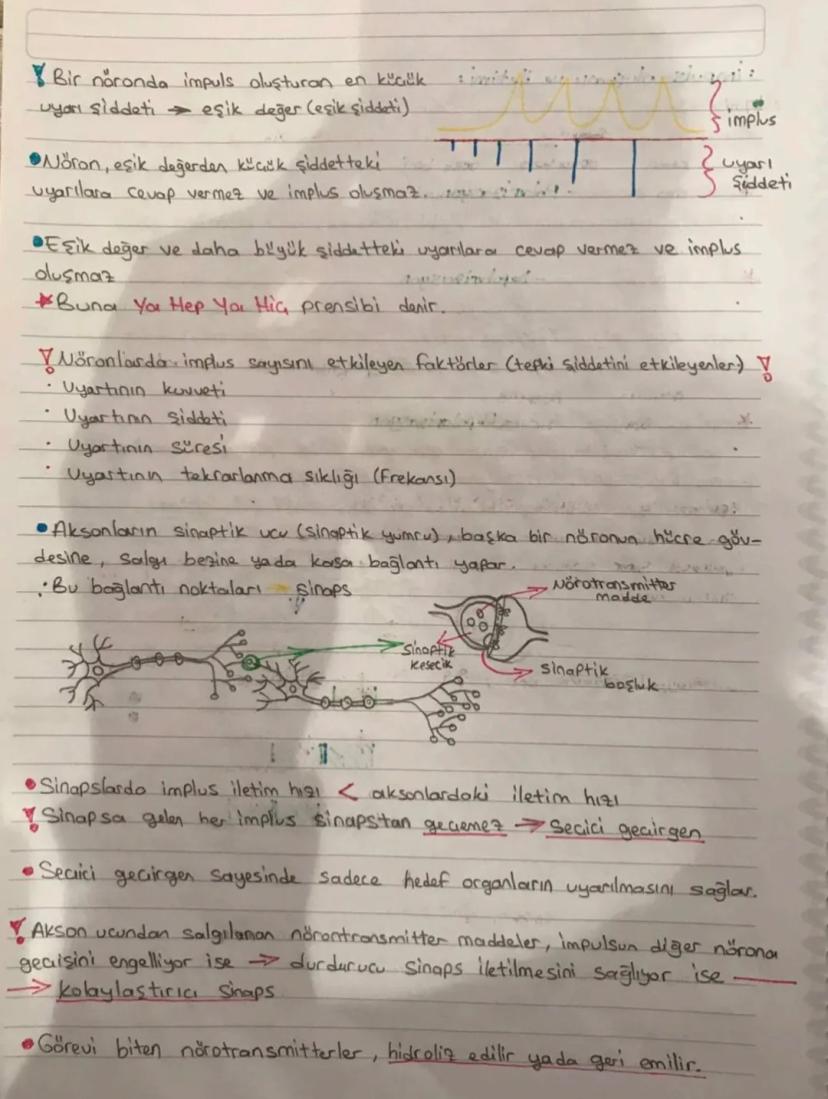 Bir nöronda impuls oluşturan en küçük
uyarı şiddeti → eşik değer (eşik şiddeti)
implus
• Nöron, eşik değerden küçük şiddetteki
uyarılara cevap vermez ve implus oluşmaz.
uyarı
şiddeti
• Eşik değer ve daha büyük şiddetteki uyarılara cevap vermez ve implus
oluşmaz
* Buna Ya Hep Ya Hiç prensibi denir.
Nöronlarda implus sayısını etkileyen faktörler (tepki şiddetini etkileyenler)
· Uyartının kuvveti
· Uyartının şiddeti
· Uyartının süresi
· Uyartının tekrarlanma sıklığı (Frekansı)
• Aksonların sinaptik ucu (sinaptik yumru), başka bir nöronun hücre göv-
desine, salgı bezine yada kasa bağlantı yapar.
∴ Bu bağlantı noktaları → sinaps
Nörotransmitter
madde
Sinaptik
kesecik
sinaptik
boşluk
• Sinapslarda implus iletim hızı < aksonlardaki iletim hızı
! Sinapsa gelen her implus sinapstan geçemez → Seçici geçirgen
• Seçici geçirgen sayesinde sadece hedef organların uyarılmasını sağlar.
! Akson ucundan salgılanan nörontransmitter maddeler, impulsun diğer nörona
geçişini engelliyor ise → durdurucu sinaps iletilmesini sağlıyor ise
→ kolaylaştırıcı sinaps
• Görevi biten nörotransmitterler, hidroliz edilir yada geri emilir.